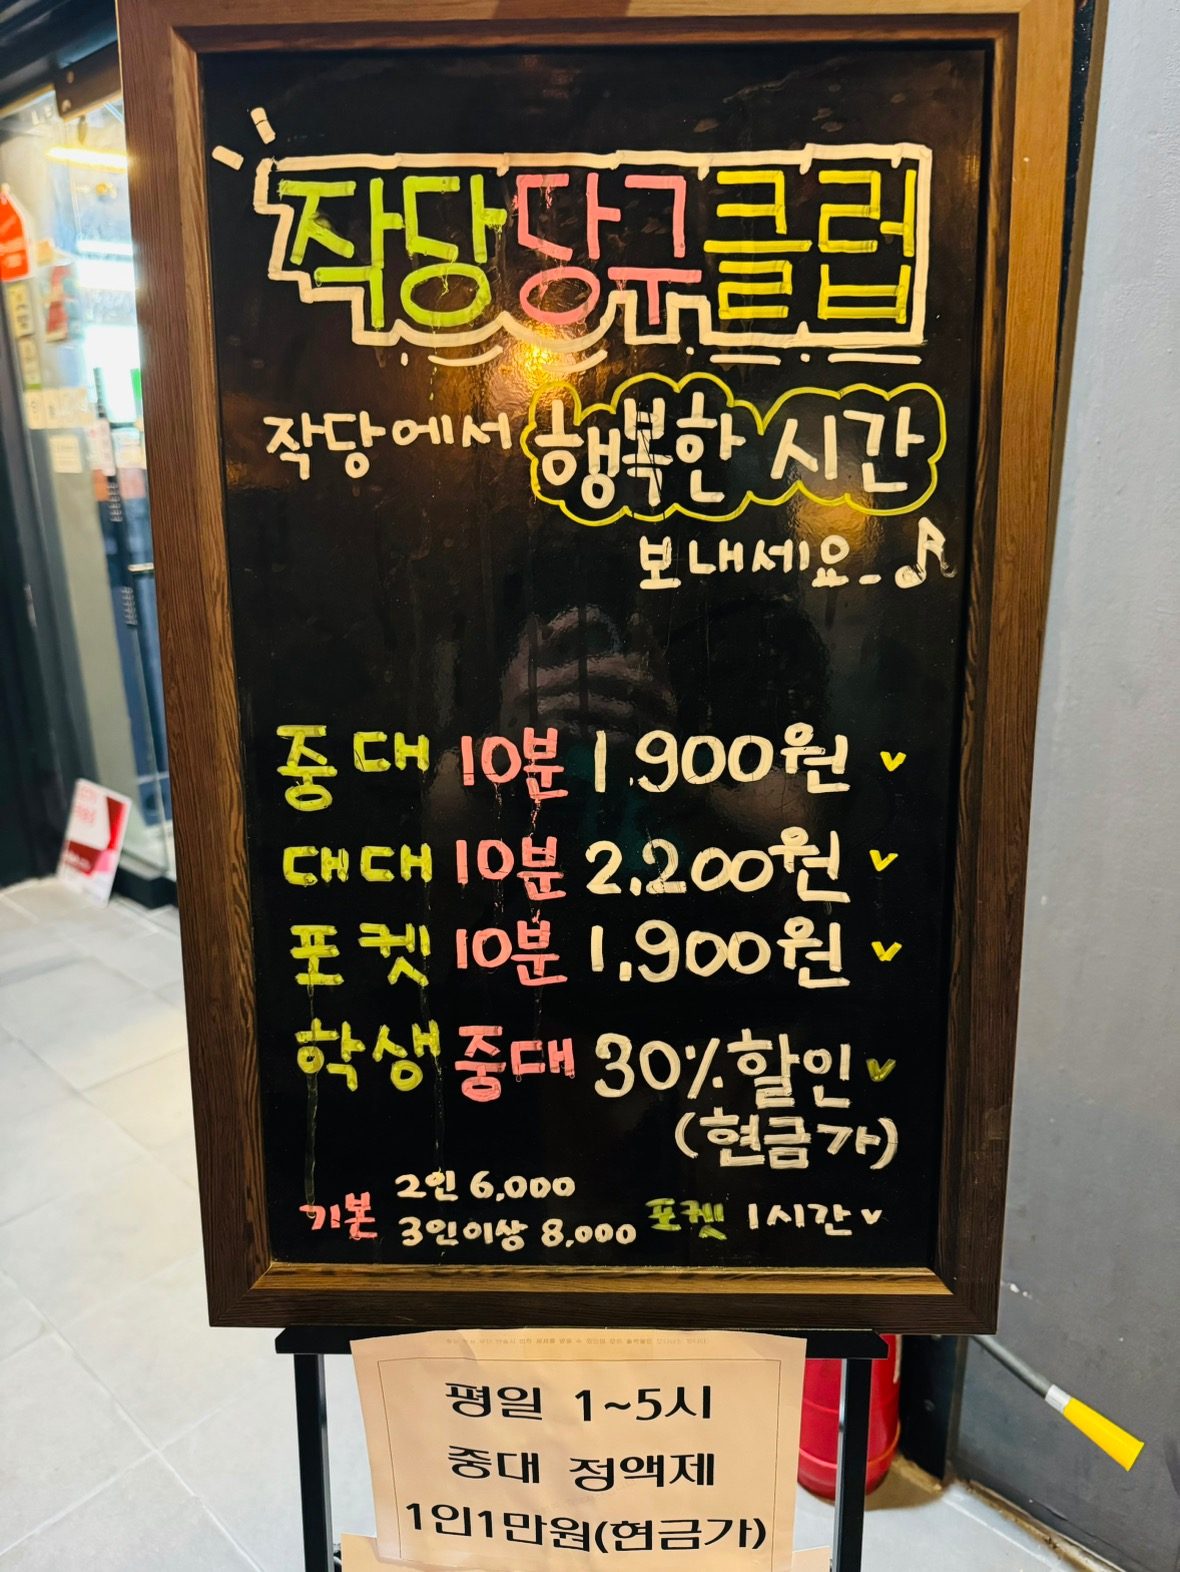 작당당구클럽
작당에서 행복한 시간
보내세요_♪
중대 10분 1.900원
대대 10분 2.200원
포켓 10분 1.900원
학생 중대 30% 할인
(현금가)
기본 2인 6,000
3인이상 8,000 포켓 1시간
평일 1~5시
중대 정액제
1인1만원(현금가)